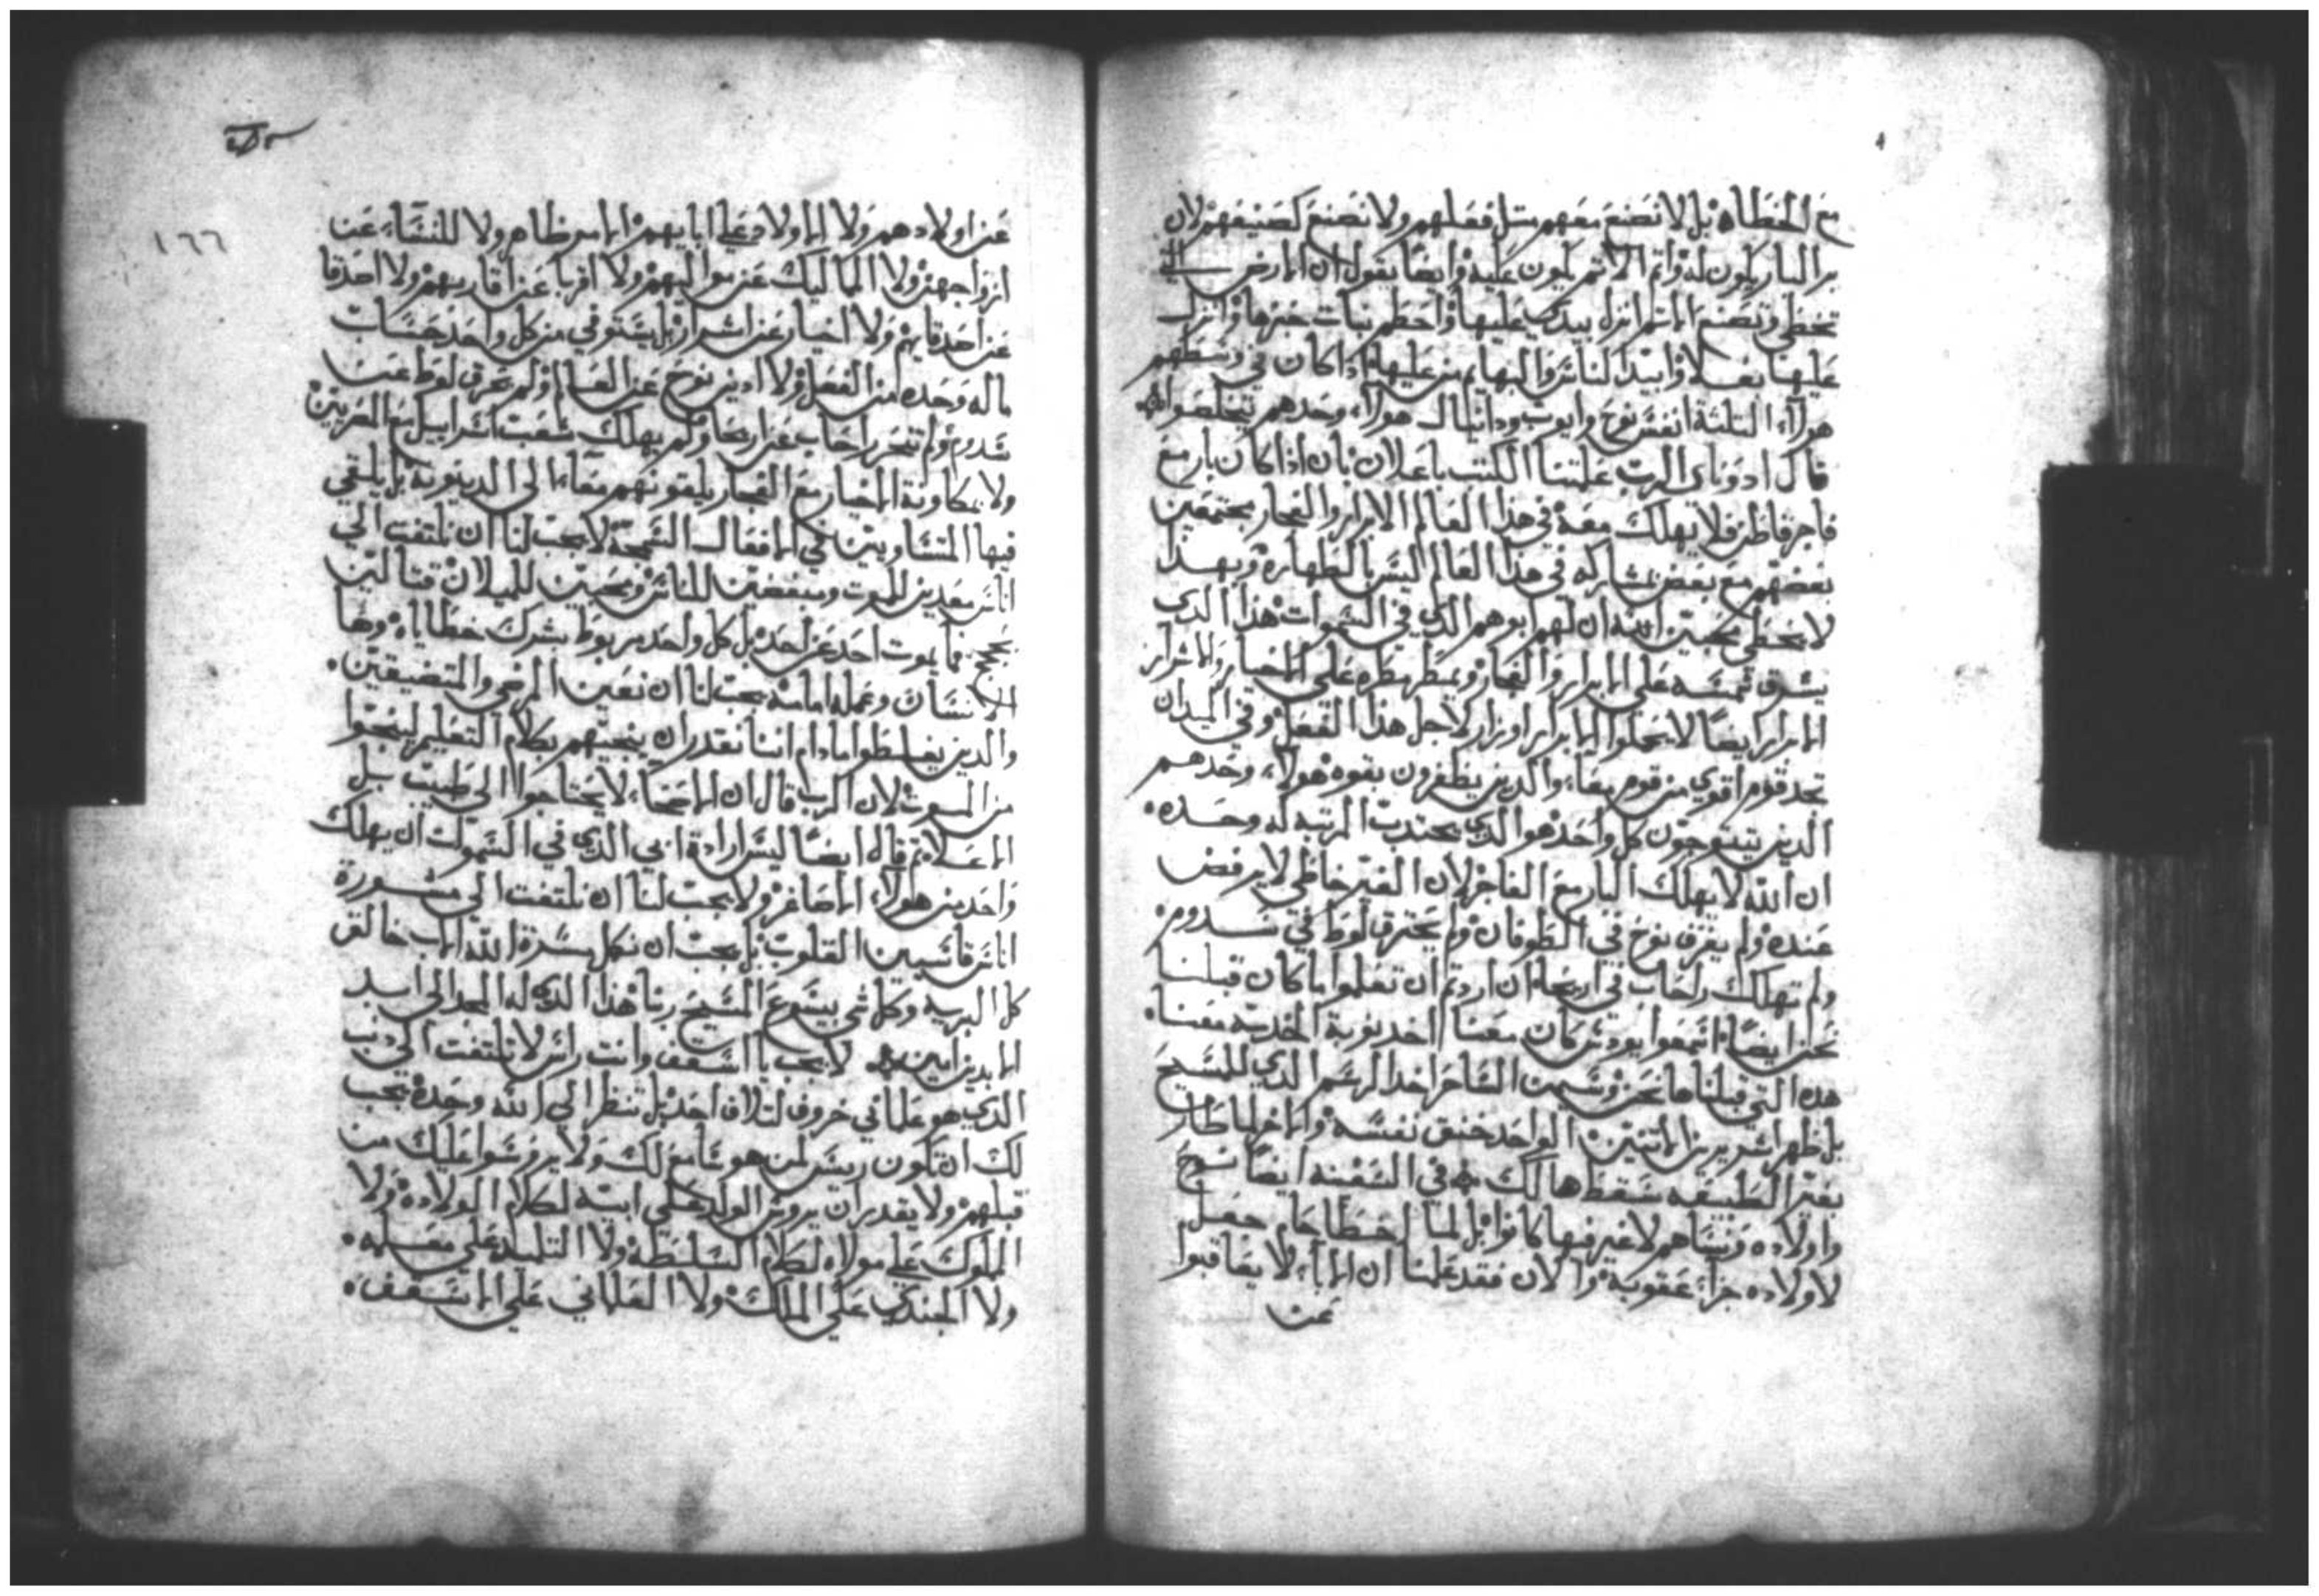 مع الخطاه بل لا نصنع معهم مثل فعلهم ولا نصنع كصنيعهم لان
بر البار يكون له واثم الاثم يكون عليه وايضا يقول ان الارض التي
تخطي وتصنع الاثم انزل بيدي عليها واحطم نبات خبزها وانزل
عليها بغلا وابيد الناس والبهايم من عليها اذا كان في وسطهم
هولاء الثلثة انفس نوح وايوب ودانيال هولاء وحدهم يتخلصوا
قال ادوناي الرب علمتنا الكتب باعلان بان اذا كان بار مع
فاجر فاظن فلا يهلك معه في هذا العالم الابرار والفجار مجتمعين
بعضهم مع بعض بمشاركه في هذا العالم ليس بالطهارة وبهذا
لا يخطي محبين الله ان لهم ابوهم الذي في السموات هذا الذي
يشرق شمسه على الابرار والفجار ويمطر مطره على الاخيار والاشرار
الابرار ايضا لا يحملوا الابرار اوزار لاجل هذا الفعل وفي الميدان
تجد قوم اقوي من قوم معا والذين يظفرون بقوه هولاء وحدهم
الذين يتتوجون كل واحد هو الذي يجتذب المرتبه له وحده
ان الله لا يهلك البار مع الفاجر لان الغير خاطي لا يرفض
عنده ولم يغرق نوح في الطوفان ولم يحترق لوط في سدوم
ولم تهلك راحاب في اريحا ان اردتم ان تعلموا ما كان قبلنا
نحن ايضا اسمعوا يودس كان معنا اخد نوبة الخدمه معنا
هده التي قبلناها نحن وسيمن الساحر اخد الرسم الدي للمسيح
بل ظهر اشرير من الاتنين الواحد خنق نفسه والاخر لما طار
بغير الطبيعه سقط هالك في السفينه ايضا نوح
واولاده ونساهم لا غير فيها كانوا بل لما اخطا حام جعل
لاولاده جزاء عقوبة والان فقد علمنا ان الاباء لا يعاقبوا
عن
١٦٦
عن اولادهم ولا الاولاد على ابايهم الامر ظاهر ولا للنساء عن
ازواجهن ولا المماليك عن مواليهم ولا اقربا عن اقاربهم ولا اصدقا
عن اصدقايهم ولا اخيار عن اشرار بل يستوفي من كل واحد حساب
ماله وحده من الفعل ولا ادين نوح عن العالم ولم يحرق لوط عن
سدوم ولم تنحر راحاب عن اريحا ولم يهلك شعب اسراييل مع المصريين
ولا بمكاونة الاخيار مع الفجار يلقونهم معا الى الدينونة بل يلتقي
فيها المتساويين في الافعال السمجة لا يجب لنا ان نلتفت الي
اناس معدين للموت ومبغضين للناس ومحبين للميلان قتالين
بحجج فما يموت احد عن احد بل كل واحد مربوط بشرك خطاياه وها
الانسان وعمله امامه يجب لنا ان نعين المرضي والمتضيقين
والذين يغلطوا مادام اننا نقدر ان ينجيهم بكلام التعليم لينجوا
من الموت لان الرب قال ان الاصحاء لا يحتاجوا الي طبيب بل
الاعلا ثم قال ايضا ليس ارادة ابي الذي في السموات ان يهلك
واحد من هولاء الاصاغر ولا يجب لنا ان نلتفت الي مشورة
اناس قاسيين القلوب بل يجب ان نكمل مسرة الله الاب خالق
كل البريه وكل شي بيسوع المسيح ربنا هذا الدي له المجد الى ابد
الابدين امين لا يجب يا اسقف وانت راس لا تلتفت الي ذنب
الذي هو علماني خروف لتلاف احد بل تنظر الي الله وحده يجب
لك ان تكون ريس لمن هو سامع لك ولا يروسوا عليك من
قبلهم ولا يقدر ان يروس الولد على ابيه لكلام الولاده ولا
المملوك علي مولاه لكلام السلطه ولا التلميذ علي معلمه
ولا الجندي علي الملك ولا العلماني علي الاسقف